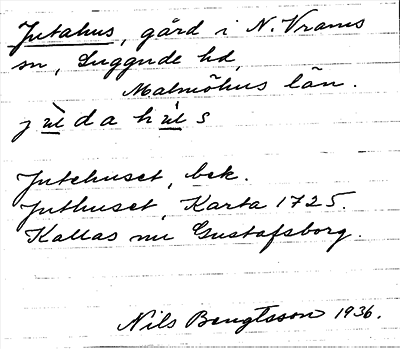 Jutahus, gård i N. Vrams
sn, Luggude hd,
Malmöhus län.
j ùl d a h ùl s
Jutehuset, bek.
Juthuset, Karta 1725.
Kallas nu Gustafsborg.
Nils Bengtsson 1936.